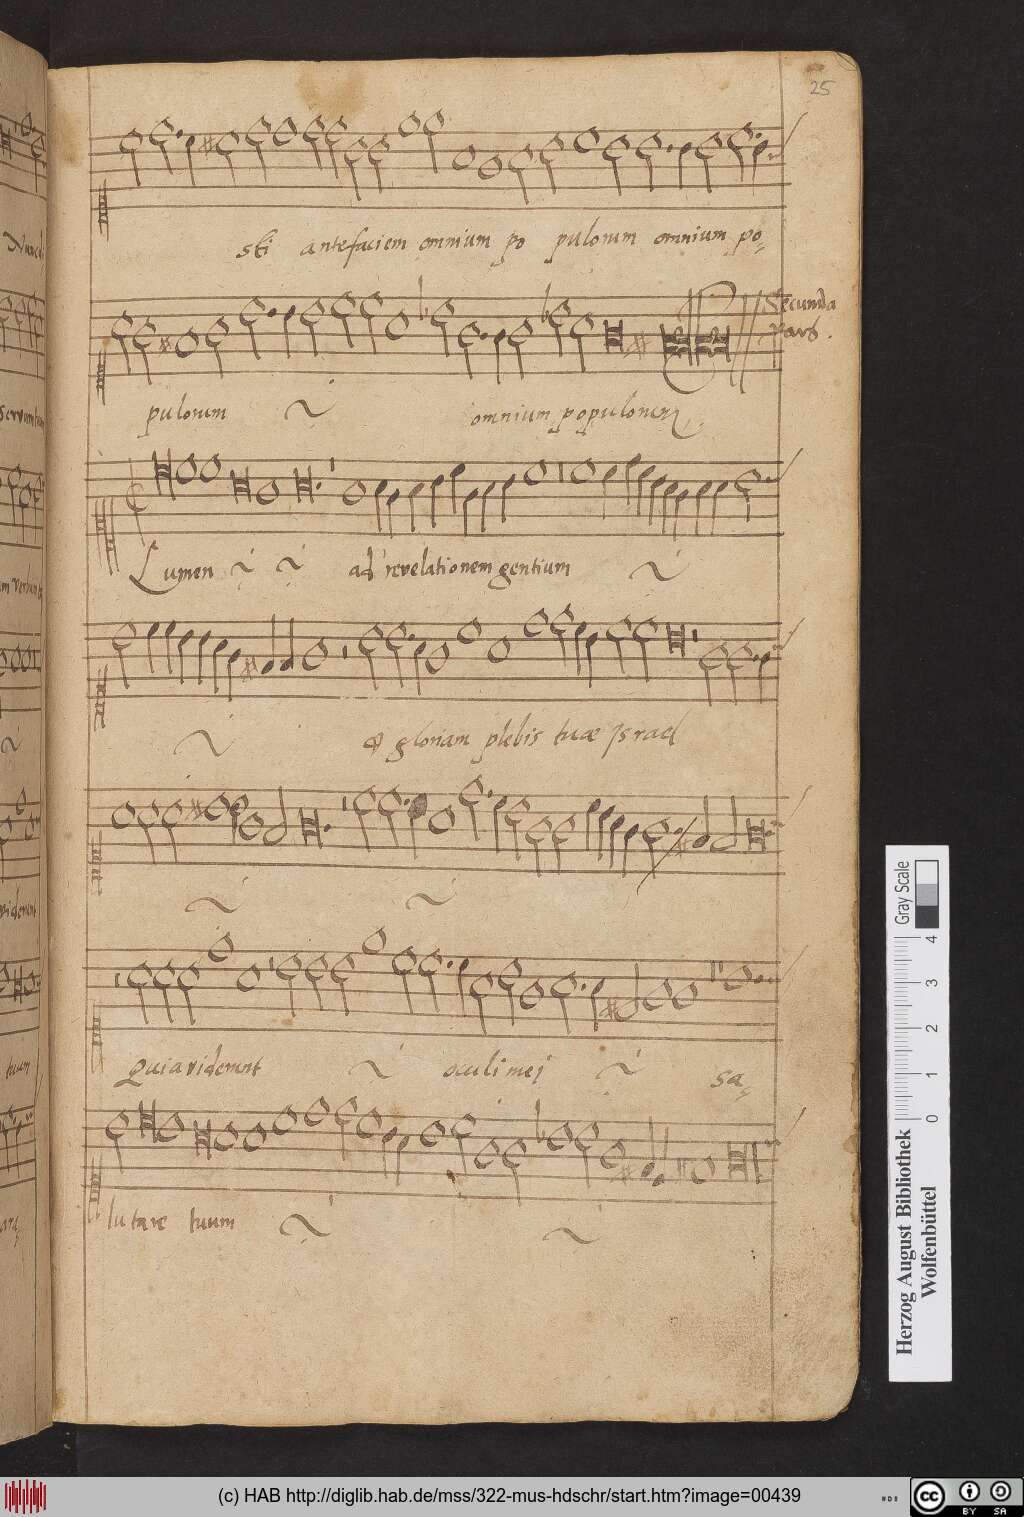 25
sti ante faciem omnium po pulorum omnium po-
Secunda
Pars.
pulorum omnium populorum
Lumen ad revelationem gentium
& gloriam plebis tuæ Israel
Quia viderunt oculi mei sa-
lutare tuum
Gray Scale
0 1 2 3 4
Herzog August Bibliothek
Wolfenbüttel
(c) HAB http://diglib.hab.de/mss/322-mus-hdschr/start.htm?image=00439
cc BY SA